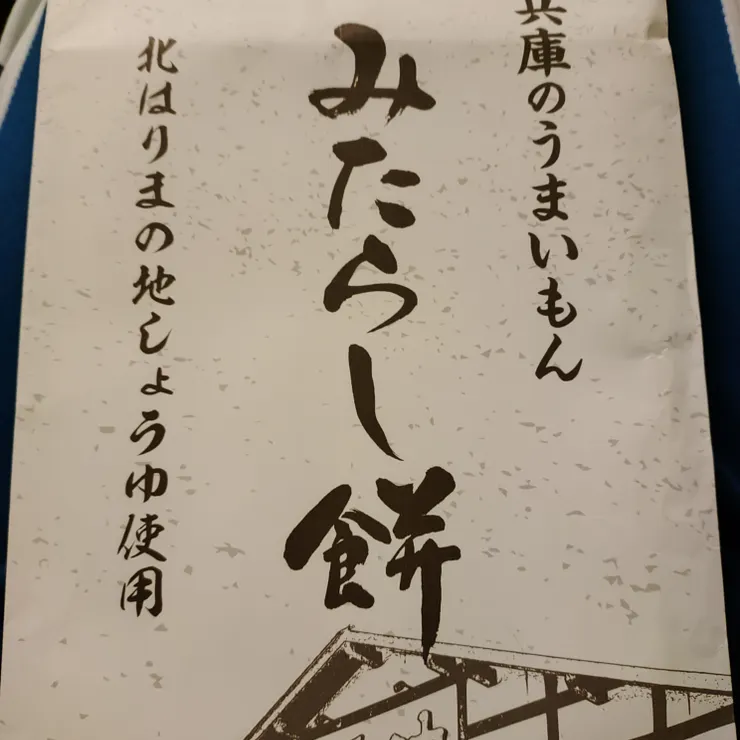 兵庫のうまいもん
みたらし餅
北はりまの地しょうゆ使用